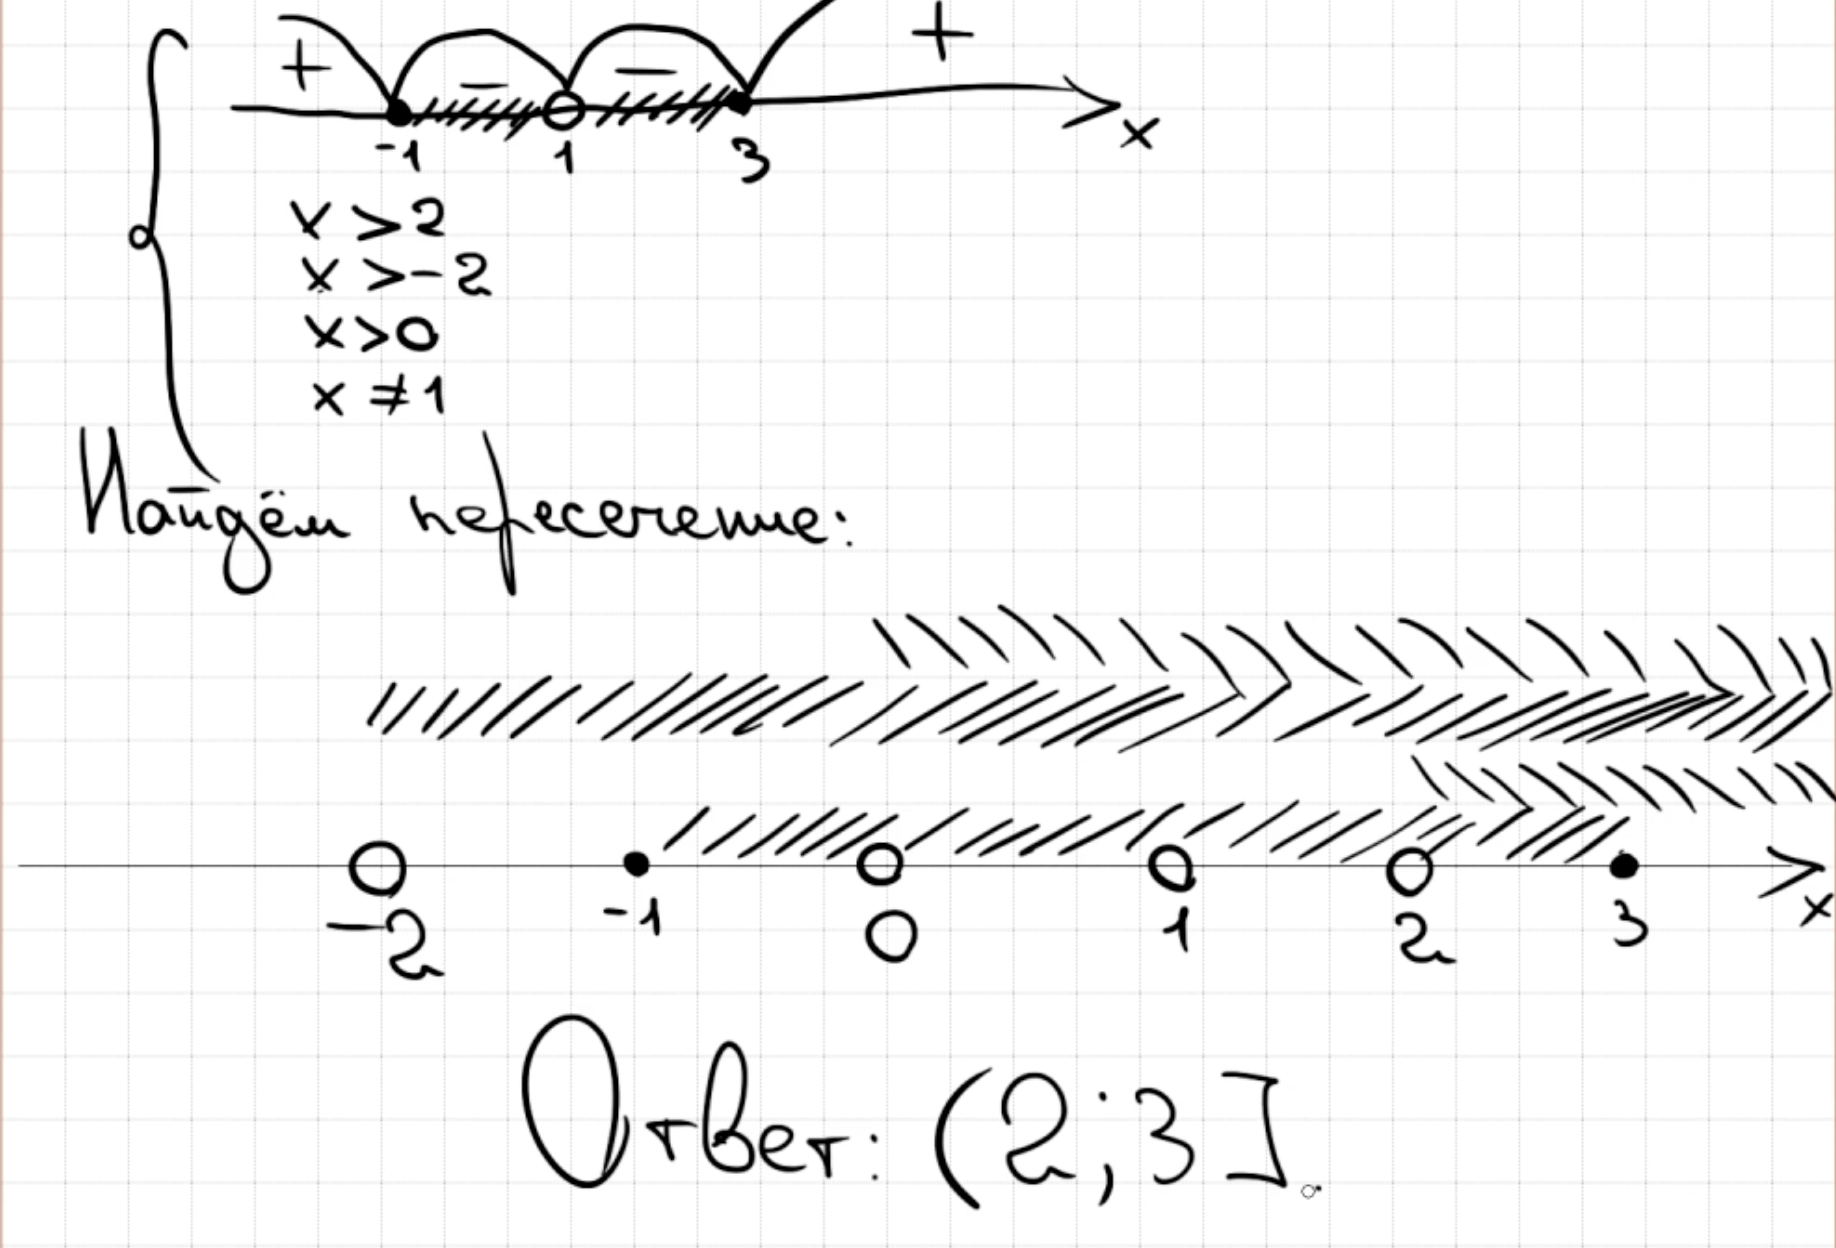 + − − +
-1 1 3 x
x > 2
x > -2
x > 0
x ≠ 1
Найдём пересечение:
-2 -1 0 1 2 3 x
Ответ: (2;3].